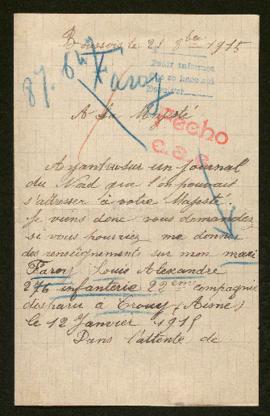 le 21 8bre 1915
87.
Faroy
Pedir informes
Hecho
A Sa Majesté
Ayant lu sur un journal
du Nord que l'on pouvait
s'adresser à votre Majesté.
Je viens donc vous demander
si vous pourriez me donner
des renseignements sur mon mari
Faroy Louis Alexandre
276 infanterie 22eme compagnie
disparu à Crouy (Aisne)
le 12 Janvier 1915
Dans l'attente de